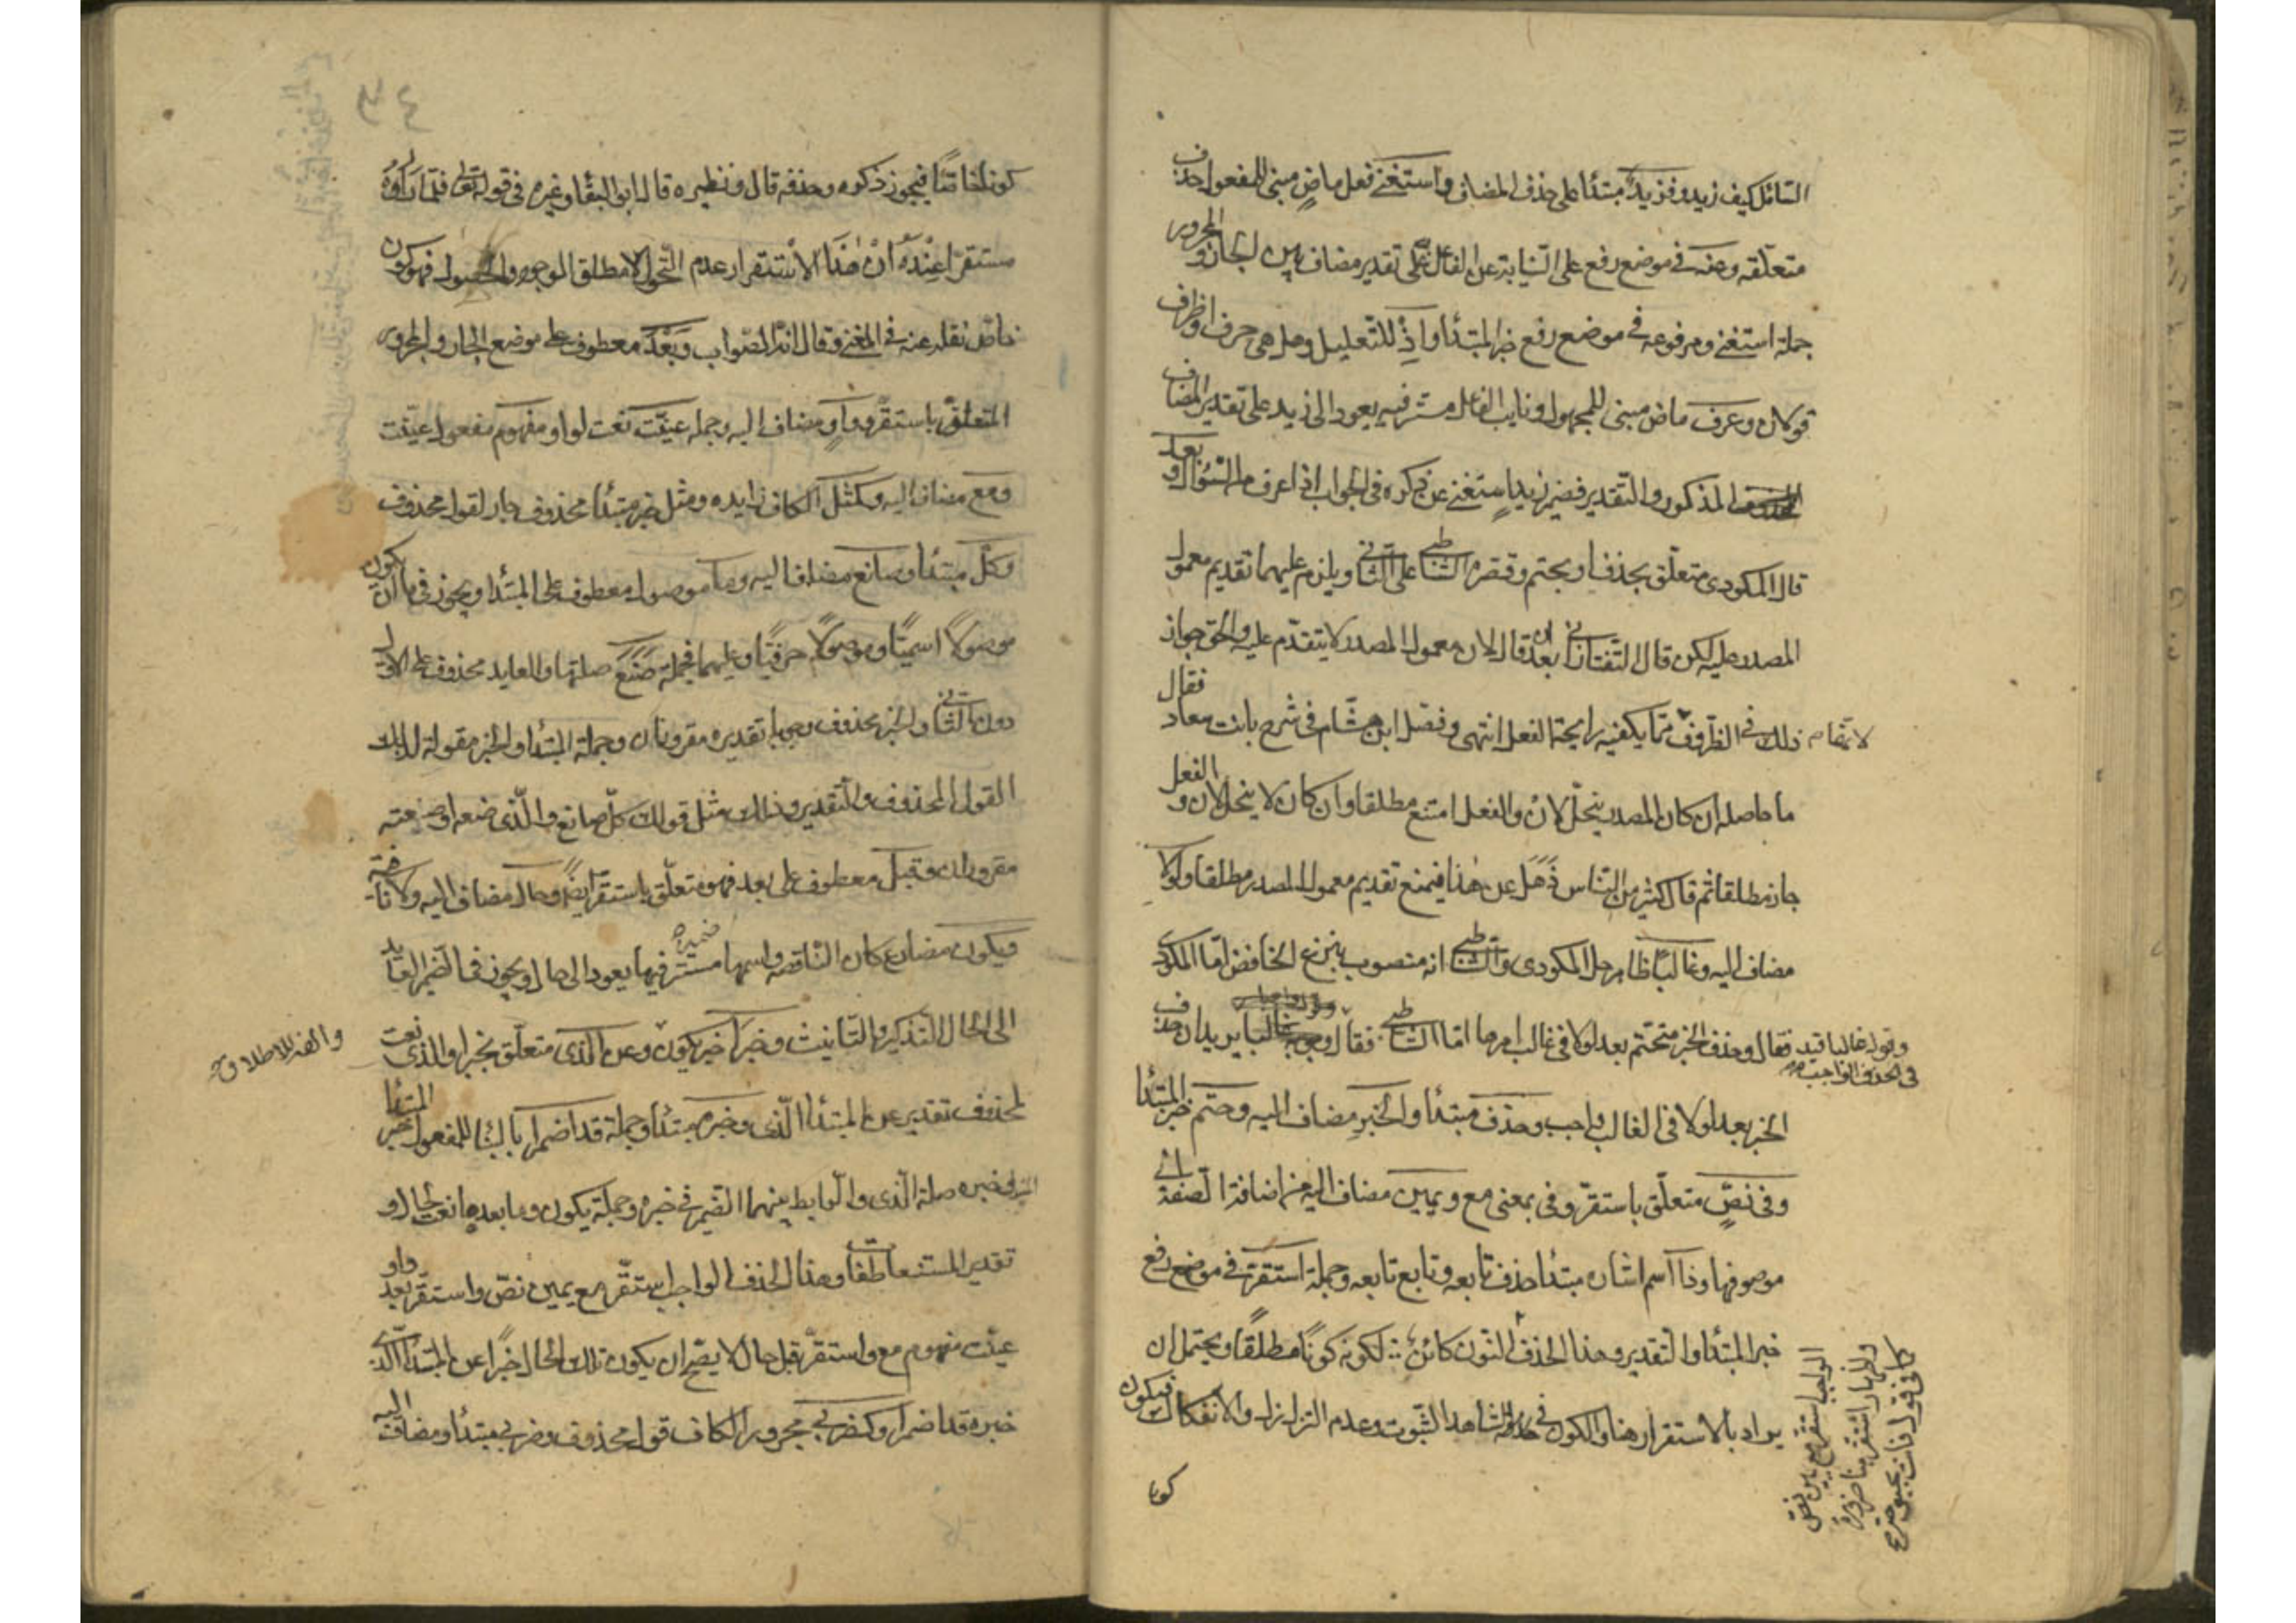 السائل كيف زيد وفزيد مبتدا على حذف المضاف واستغنى فعل ماض مبنى للمفعول حذف
متعلقه وعنه فى موضع رفع على النيابة عن الفاعل على تقدير مضاف بين الجار والمجرور
جملة استغنى ومرفوعه فى موضع رفع خبر المبتدأ واذ للتعليل وهل هى حرف او ظرف
قولان وعرف ماض مبنى للمجهول ونايب الفاعل مستتر فيه يعود الى زيد على تقدير المضاف
المذكور والتقدير فضمير زيد استغنى عن ذكره فى الجواب اذ اعرف من السؤال وبعد
قال المكودى متعلق بحذف او بحتم وقصره الشاطبى على الثانى ويلزم عليهما تقديم معمول
المصدر عليه لكن قال التفتازانى بعد ان قال لان معمول المصدر لا يتقدم عليه والحق جواز
ذلك فى الظروف مما يكفيه رايحة الفعل انتهى وفصل ابن هشام فى شرح بانت سعاد فقال
ما حاصله ان كان المصدر ينحل لان والفعل امتنع مطلقا وان كان لا ينحل لان والفعل
جاز مطلقا ثم قال كثير من الناس ذهل عن هذا فيمنع تقديم معمول المصدر مطلقا ولولا
مضاف اليه وغالبا ظاهر حل المكودى والشاطبى انه منصوب بنزع الخافض اما المكودى
فقال وحذف الخبر متحتم بعد لولا فى غالب امرها اما الشاطبى فقال يريد ان حذف
وقوله غالبا قيد
فى الحذف الواجب
الخبر بعد لولا فى الغالب واجب وحذف مبتدأ والخبر مضاف اليه وحتم خبر المبتدا
وفى نص متعلق باستقر وفى بمعنى مع ويمين مضاف اليه من اضافة الصفة الى
موصوفها وذا اسم اشارة مبتدا حذف تابعه وتابع تابعه وجملة استقر فى موضع رفع
خبر المبتدأ والتقدير وهذا الحذف لكونه كونا مطلقا ويحتمل ان
يراد بالاستقرار هنا والكون فى الشاهد الثبوت وعدم التزلزل والانفكاك فيكون
كونا
كونا خاصا فيجوز ذكره وحذفه قال ونظيره قال ابو البقا وغيره فى قوله تعالى فلما رآه
مستقرا عنده ان هذا الاستقرار عدم التحول لا مطلق الوجود والحصول فهو كون
خاص نقله عنه فى المغنى وقال انه الصواب وبعد معطوف على موضع الجار والمجرور
المتعلق باستقر وواو مضاف اليه وجملة عينت نعت لواو ومفهوم مفعول عينت
ومع مضاف اليه وكمثل الكاف زايده ومثل خبر مبتدأ محذوف جار لقول محذوف
وكل مبتدأ وصانع مضاف اليه وما موصول معطوف على المبتدا ويجوز فى ما ان يكون
موصولا اسميا وموصولا حرفيا وعليهما فجملة صنع صلتها والعايد محذوف على الاول
دون الثانى والخبر محذوف وجوبا تقديره مقرونان وجملة المبتدأ والخبر مقولة لذلك
القول المحذوف والتقدير وذلك مثل قولك كل صانع والذى صنعه او صنعته
مقرونان وقبل معطوف على بعد فهو متعلق باستقر ايضا وحال مضاف اليه ولا نافية
ويكون مضارع كان الناقصه واسمها ضميره مستتر فيها يعود الى حال ويجوز فى الضمير العايد
الى الحال التذكير والتانيث وخبرا خبر يكون وعن الذى متعلق بخبرا والذى نعت
والفه للاطلاق
لمحذوف تقديره عن المبتدأ الذى وخبره مبتدأ وجملة قد اضمر بالبنا للمفعول خبر المبتدأ
خبره صلة الذى والرابط بينهما الضمير فى خبره وجملة يكون وما بعدها نعت لحال و
وهذا الحذف الواجب استقر مع يمين نص واستقر بعد واو
عينت مفهوم مع واستقر قبل حال لا يصح ان يكون تلك الحال خبرا عن المبتدأ الذى
خبره قد اضمر او كضربى مجرور الكاف قول محذوف وضربى مبتدأ ومضاف اليه